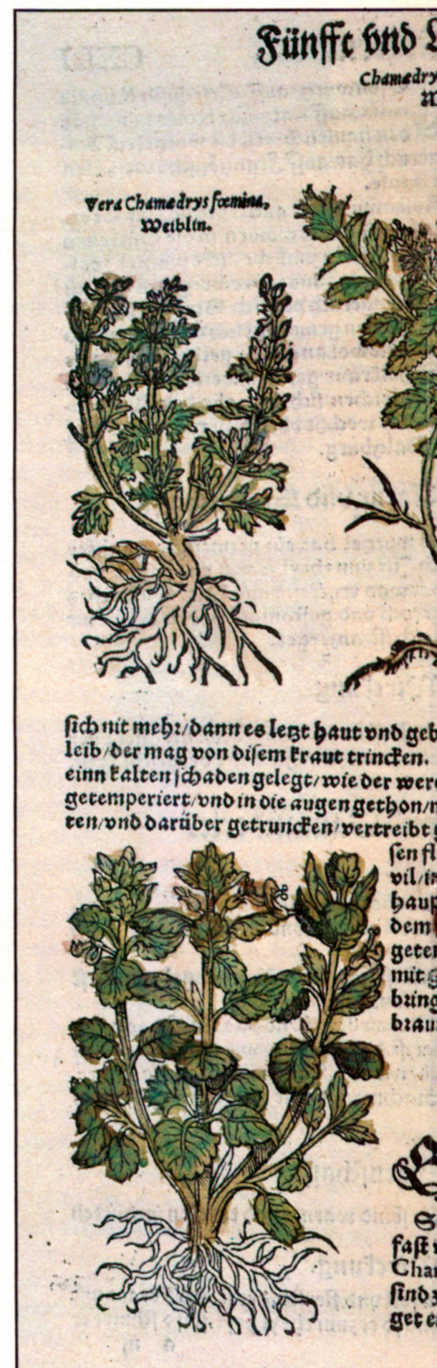 Fünffe vnd
Chamædry
Vera Chamædrys fœmina,
Weiblin.
sich nit mehr/dann es letzt haut vnd geb
leib/der mag von disem kraut trincken.
einn kalten schaden gelegt/wie der were
getemperiert/vnd in die augen gethon/
ten/vnd darüber getruncken/vertreibt
sen fl
vil/in
haup
dem
getem
mit g
bring
brau
S
fast
Cham
sind z
get e